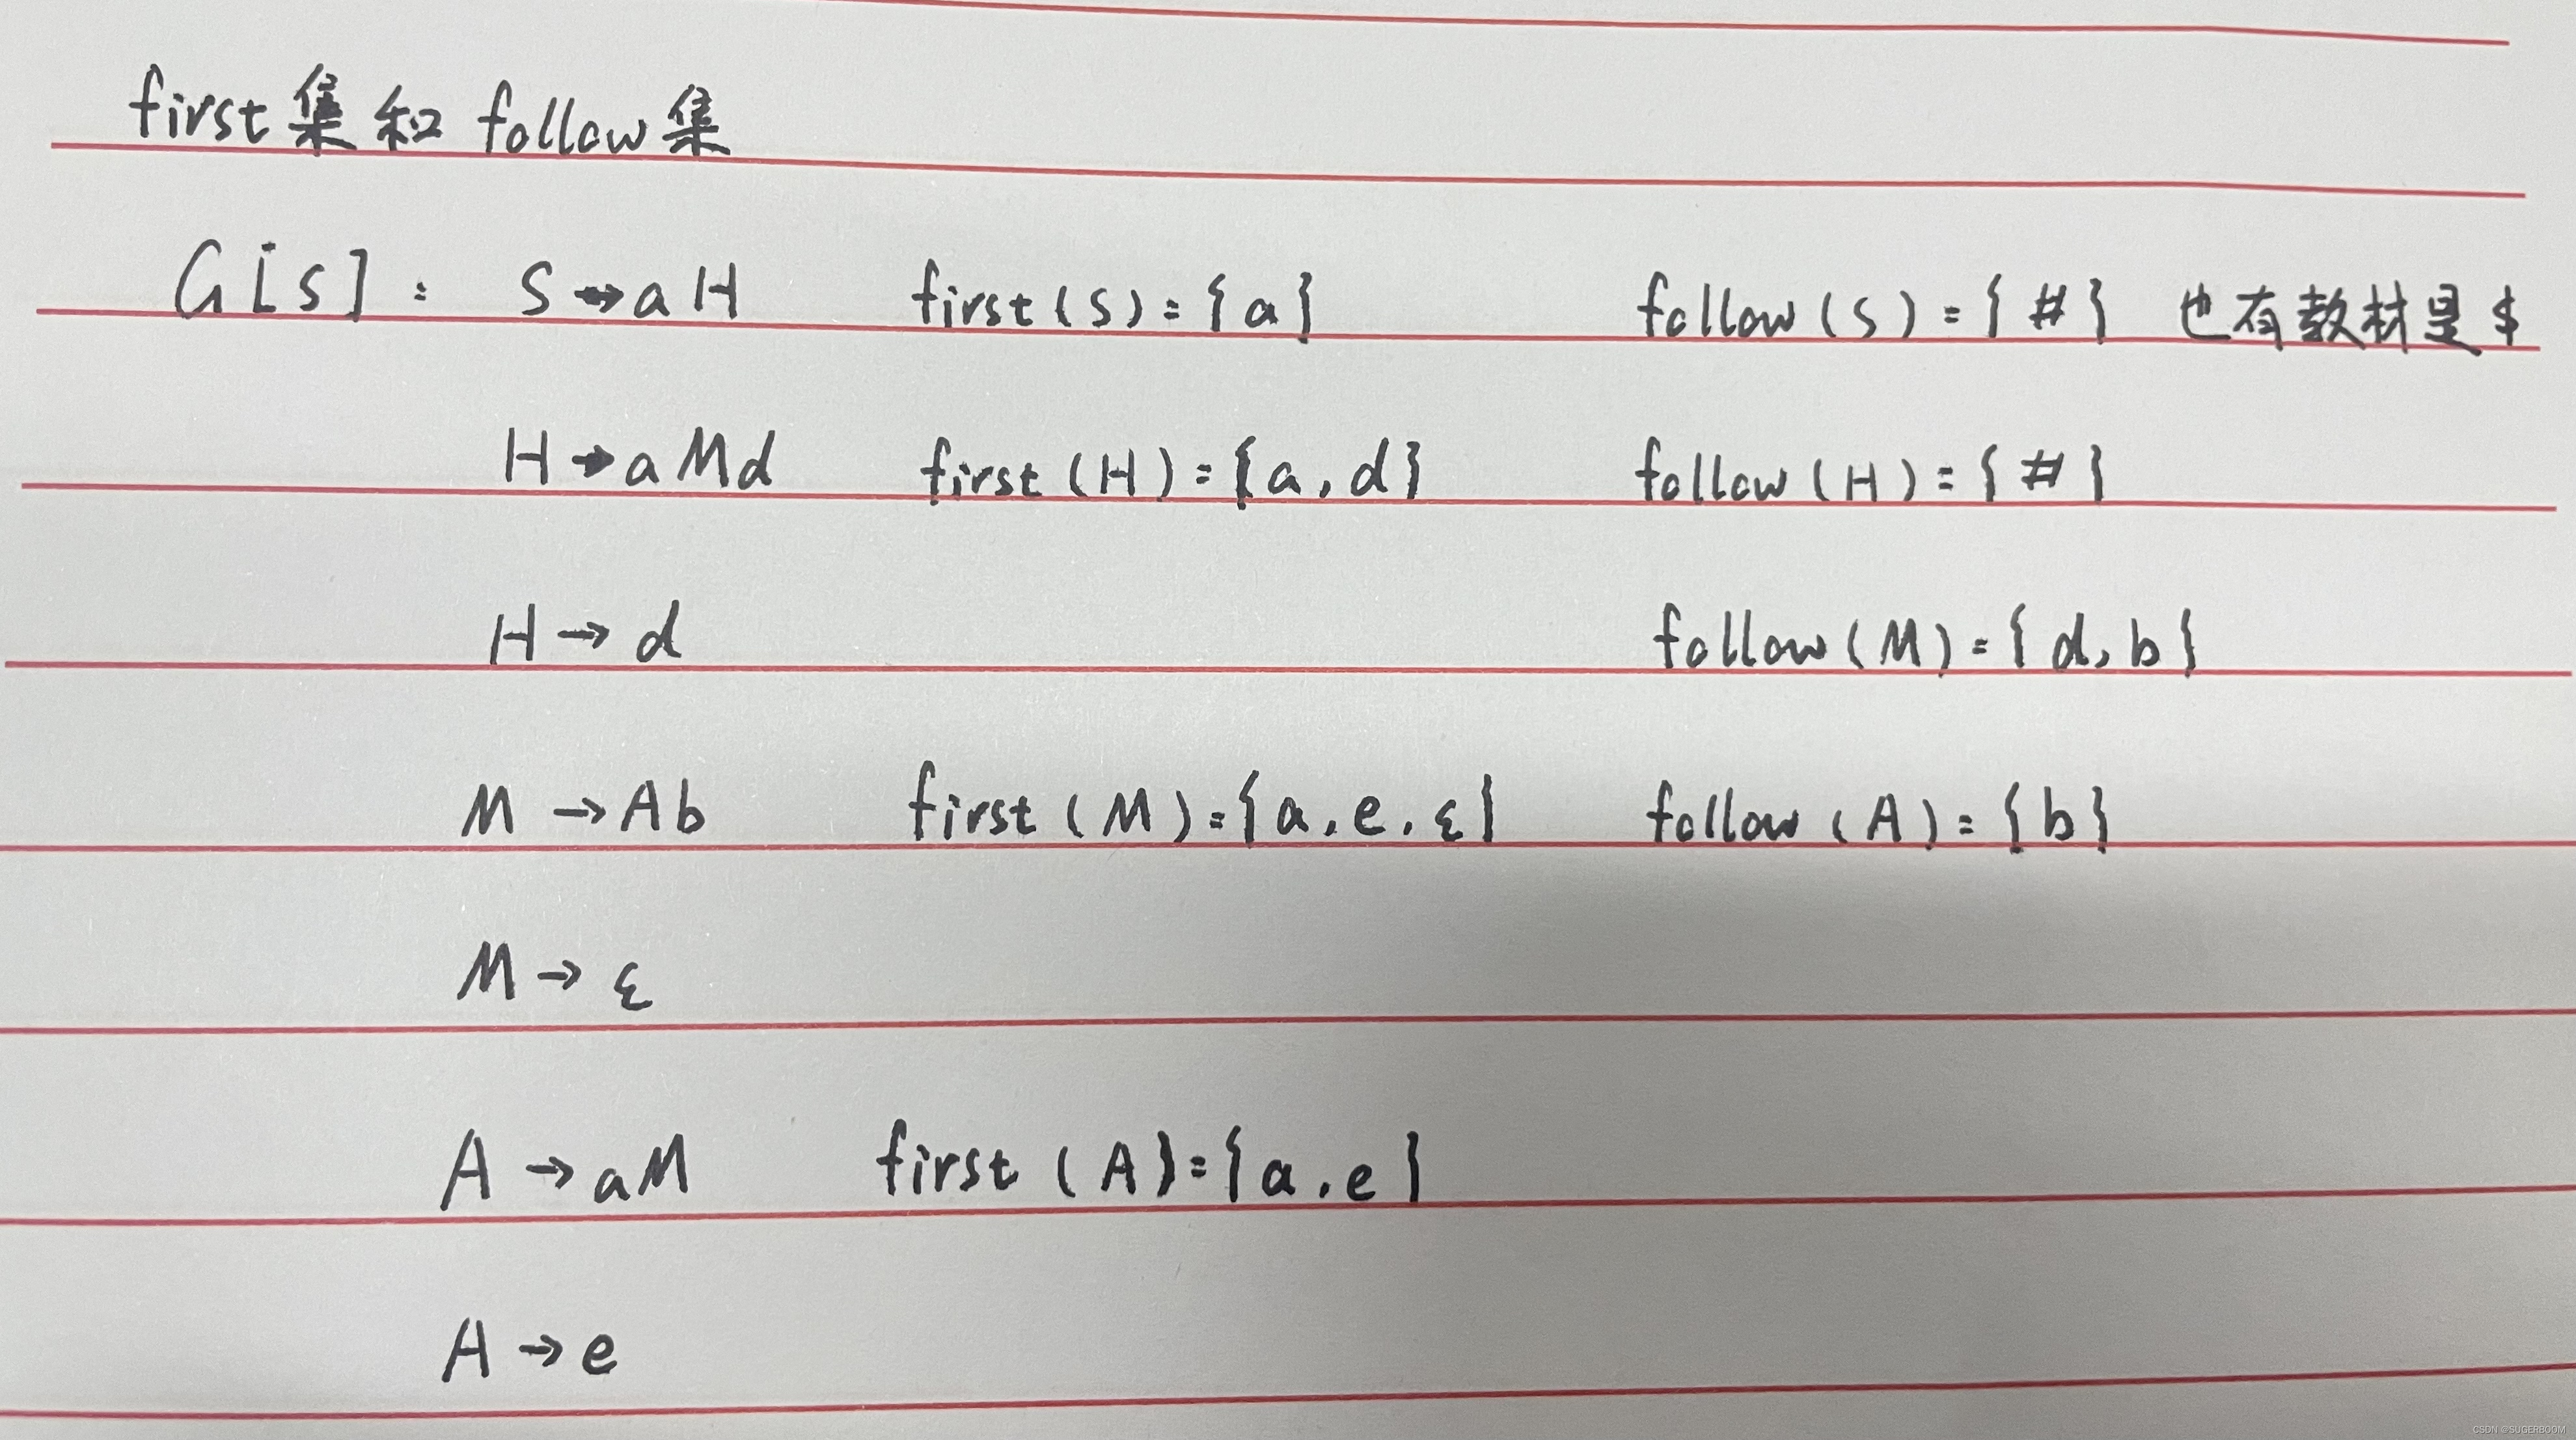 first集和 follow集
G[S]: S→aH first(S)={a} follow(S)={#} 也有教材是$
H→aMd first(H)={a,d} follow(H)={#}
H→d follow(M)={d,b}
M→Ab first(M)={a,e,ε} follow(A)={b}
M→ε
A→aM first(A)={a,e}
A→e
CSDN @SUGERBOOM